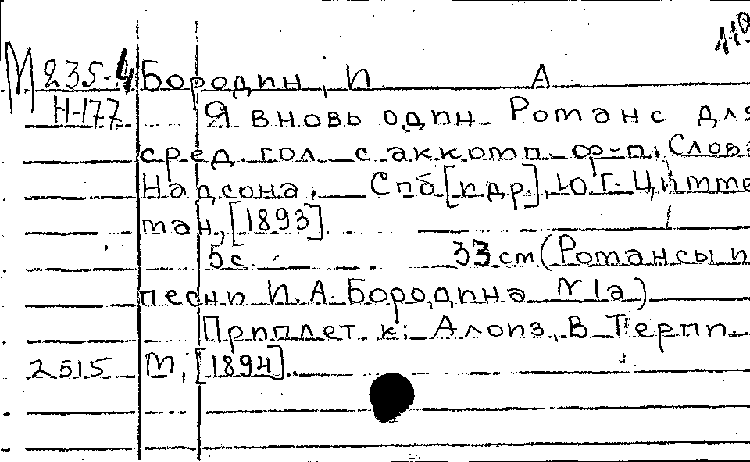 119
М 235-4 Бородин, И А
Н-177 Я вновь один. Романс для
сред. гол. с аккомп. ф-п. Слова
Надсона. Спб [и др.], Ю.Г. Цимме
ман, [1893].
5 с. 33 см (Романсы и
песни И.А. Бородина №1а)
Приплет. к: Алоиз, В. Терпи.
2515 М, [1894].